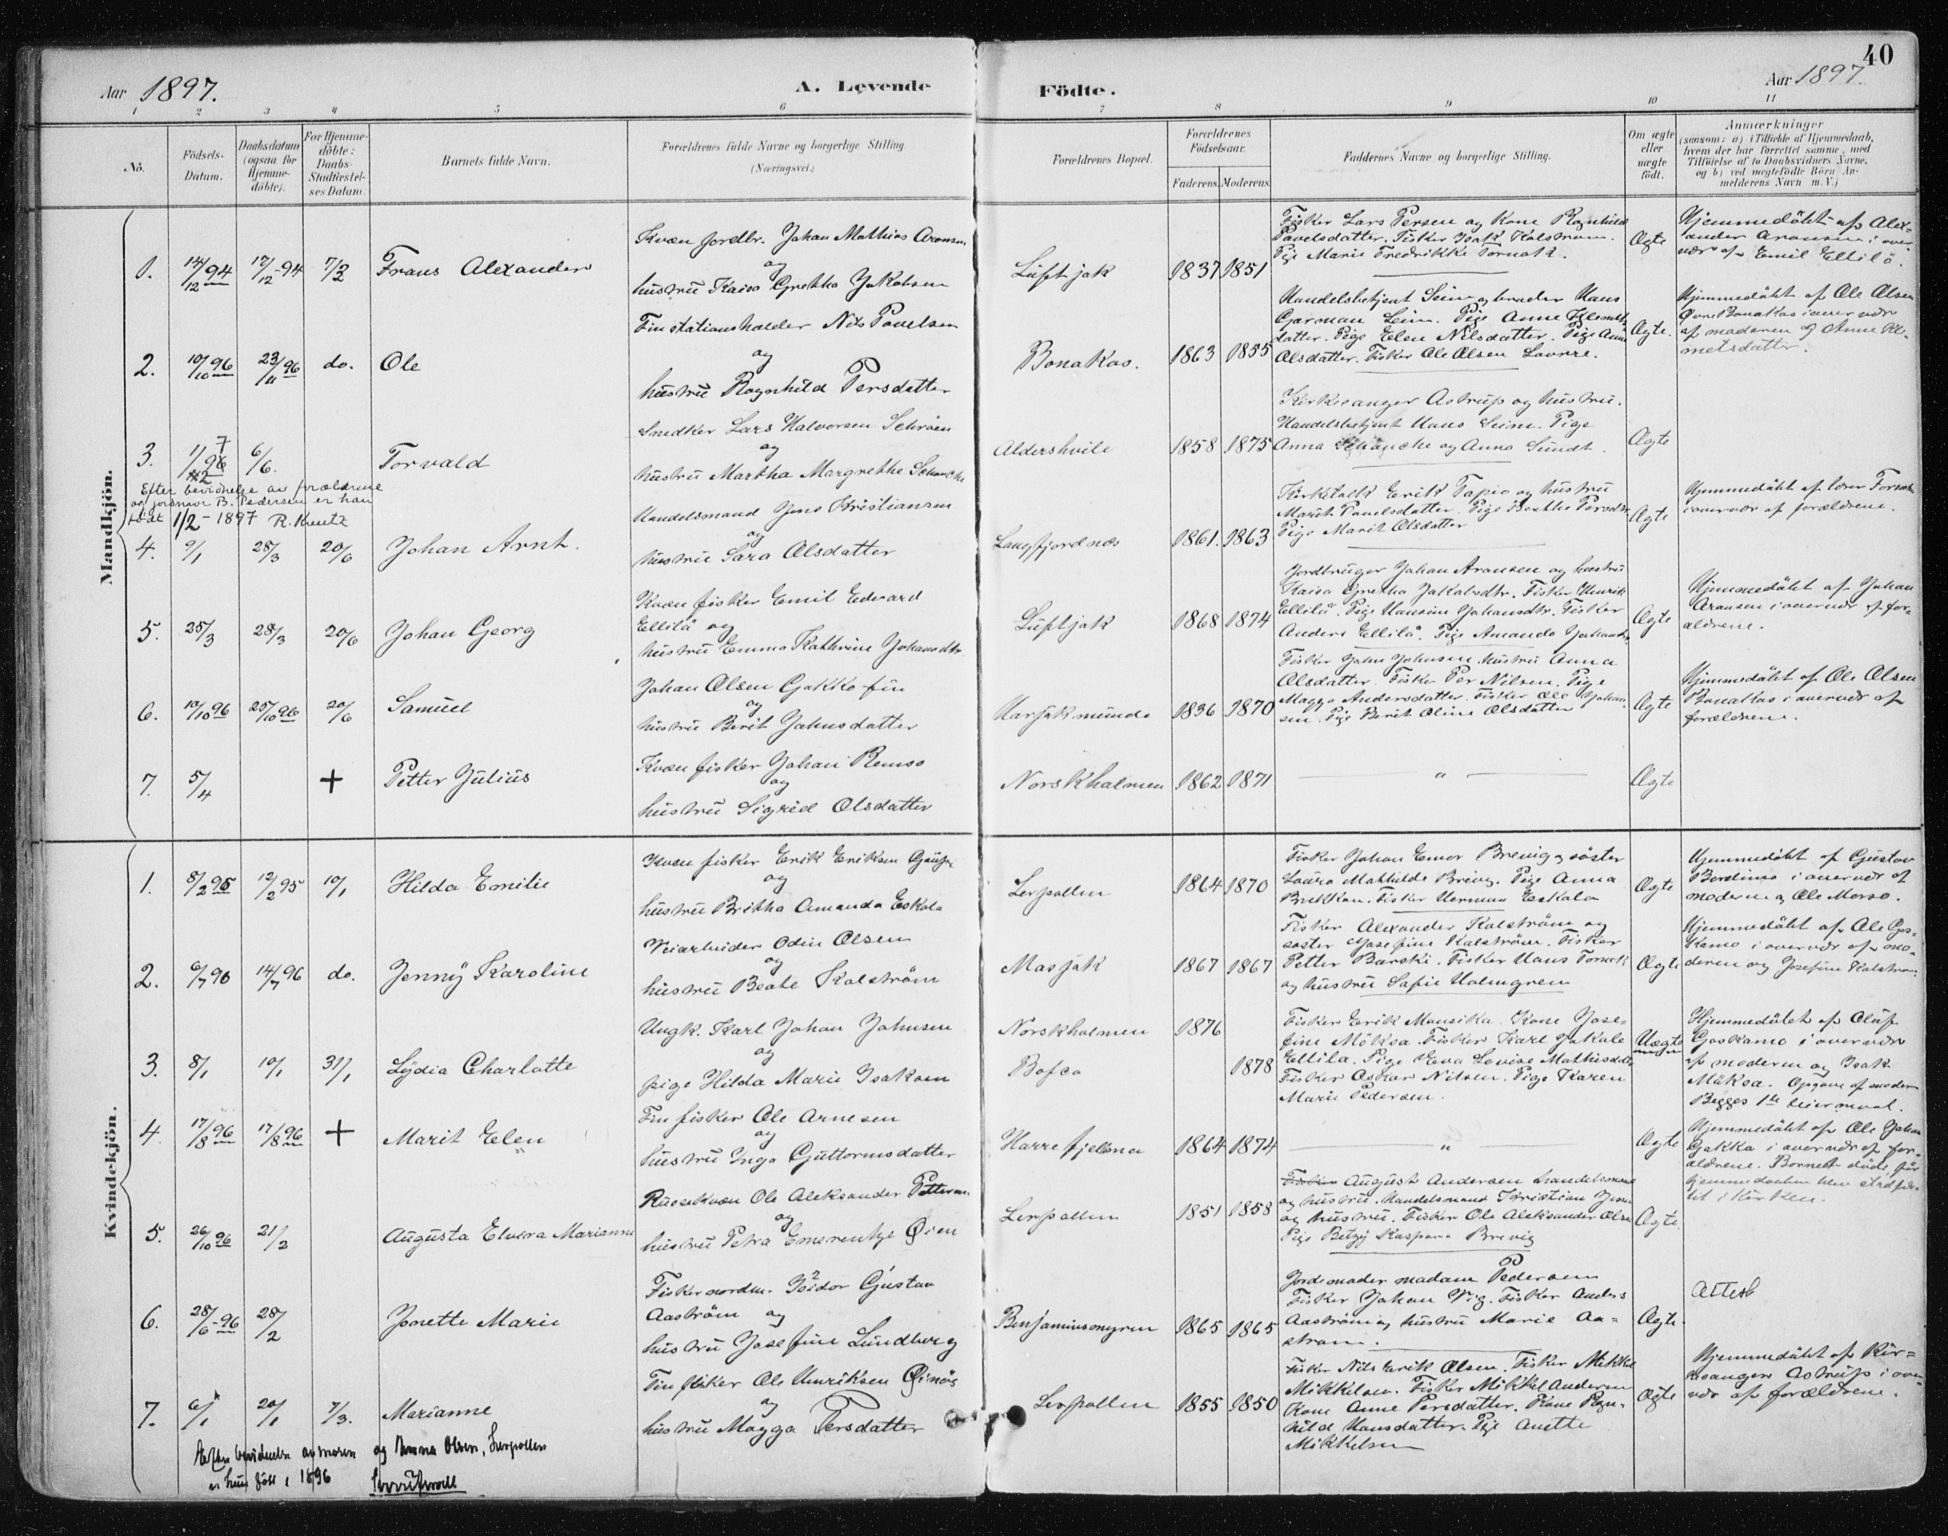 40
Aar 1897.
A. Levende
Födte.
Aar 1897.
1 2 3 4 5 6 7 8 9 10 11
No.
Födsels-
Datum.
Daabsdatum
(ogsaa for
Hjemme-
döbte).
For Hjemme-
döbte:
Daabs-
Stadfæstel-
ses Datum.
Barnets fulde Navn.
Forældrenes fulde Navne og borgerlige Stilling
(Næringsvei.)
Forældrenes Bopæl.
Forældrenes
Födselsaar.
Faderens.
Moderens.
Faddernes Navne og borgerlige Stilling.
Om ægte
eller
uægte
födt.
Anmærkninger
(saasom: a) i Tilfælde af Hjemmedaab,
hvem der har forrettet samme, med
Tilföielse af to Daabsvidners Navne,
og b) ved uægtefödte Börn An-
melderens Navn m. V.)
Mandkjön.
1. 14/12 94 17/12-94 7/3 Frans Alexander
Kvæn jordbr. Johan Mathias Aronsen
og
hustru Kaisa Gretha Jakobsen
Luftjak 1837 1851
Fisker Lars Persen og Kone Ragnhild
Pavelsdatter. Fisker Isak Kalstrøm.
Pige Marie Fredrikke Tornak.
Ægte
Hjemmedöbt af Alex-
ander Aronsen i over-
vær af Emil Ellilä.
2. 10/10 96 23/11 96 do. Ole
Fin stationsholder Nils Pavelsen
og
hustru Ragnhild Persdatter
Bonakas. 1863 1855
Handelsbetjent Seim og broder Hans
Garman Seim. Pige Anne Klemets-
datter. Pige Elen Nilsdatter. Pige Anne
Olsdatter. Fisker Ole Olsen Lavrre.
Ægte.
Hjemmedöbt af Ole Olsen
Øvre Bonakas i overvær
af moderen og Anne Kle-
metsdatter.
3. 6/6. Torvald
Snedker Lars Halvorsen Schrøen
og
hustru Martha Margrethe Schanche
Aldershvile 1858 1875
Kirkesanger Astrup og hustru.
Handelsbetjent Hans Seim. Pige
Anna Schanche og Anna Sundt.
Ægte
Efter bevidnelse av forældrene
og jordmor B. Pedersen er han
født 1/2 - 1897 R. Kreutz
4. 9/1 28/3 20/6 Johan Arnt.
Handelsmand Jens Kristiansen
og
hustru Sara Olsdatter
Langfjordnæs 1861. 1863
Kirketolk Erik Tapio og hustru
Marit Pavelsdatter. Pige Berthe Persdtr.
Pige Marit Olsdatter
Ægte
Hjemmedöbt af
i overvær af forældrene.
5. 25/3 28/3 20/6 Johan Georg
Kvæn fisker Emil Edvard
Ellilä og
hustru Emma Kathrine Johansdtr.
Luftjak 1868 1874
Jordbruger Johan Aronsen og hustru
Kaisa Gretha Jakobsdtr. Fisker Henrik
Ellilä. Pige Hansine Johansdtr. Fisker
Anders Ellilä. Pige Amanda Johansdtr.
Ægte
Hjemmedöbt af Johan
Aronsen i overvær af for-
ældrene.
6. 10/10 96 25/10 96 20/6 Samuel
Johan Olsen Gakko fin
og
hustru Berit Johnsdatter
Harjakmunde 1836 1870
Fisker John Johnsen hustru Anna
Olsdatter. Fisker Per Nilsen. Pige
Magga Andersdatter. Fisker Ole Johan-
sen. Pige Berit Oline Olsdatter
Ægte
Hjemmedöbt af Ole Olsen
Bonakas i overvær af
forældrene.
7. 5/4 + Petter Julius
Kvæn fisker Johan Remso
og
hustru Sigrid Olsdatter
Norskholmen 1862 1871
— " — Ægte
Kvindekjön.
1. 8/2 95 12/2 95 10/1 Hilda Emilie
Kvæn fisker Erik Eriksen
og
hustru Britha Amanda Eskola
Leirpollen 1864 1870
Fisker Johan Emor Brevig og söster
Laura Mathilde Brevig. Pige Anna
Brekkan. Fisker Herman Eskola
Ægte
Hjemmedöbt af Gustav
i overvær af
moderen og Ole Morso.
2. 6/7 96 14/7 96 do. Jenny Karoline
Veiarbeider Odin Olsen
og
hustru Beate Kalström
Masjak 1867 1867
Fisker Alexander Kalström og
söster Josefine Kalström. Fisker
Petter Barski. Fisker Hans Tornak
og hustru Sofie Holmgren
Ægte
Hjemmedöbt af Ole Gös-
Kamo i overvær af mo-
deren og Josefine Kalström.
3. 8/1 10/1 31/1 Lydia Charlotte
Ungk. Karl Johan Johnsen
og
pige Hilda Marie Isaksen
Norskholmen 1876
Bofca 1878
Fisker Erik Mansika. Kone Jose-
fine Möksa. Fisker Karl Jakola
Ellila. Pige Eva Lovise Mathisdtr.
Fisker Oskar Nilsen. Pige Karen
Marie Pedersen.
Uægte
Hjemmedöbt af Oluf
Goskamo i overvær
af moderen og Isak
Möksa. Opgave af moderen
Begges 1ste leiermaal.
4. 17/8 96 17/8 96 + Marit Elen
Fin fisker Ole Arnesen
og
hustru Inga Guttormsdatter
Harrefjelbma 1864 1874
— " — Ægte
Hjemmedöbt af Ole Johan
Gakka i overvær af for-
ældrene. Barnet döde för
hjemmedaaben blev stadfæs-
tet i Kirken.
5. 26/10 96 21/2 Augusta Elvira Marianne
Russekvæn Ole Aleksander Pettersen
og
hustru Petra Emerentze Øien
Leirpollen 1851 1858
Fisker August Andersen handelsmand
og hustru. Handelsmand Kristian Jensen
og hustru. Fisker Ole Aleksander Olsen
Pige Betzy Kaspara Brevig
Ægte.
6. 28/6-96 28/2 Jonette Marie
Fisker nordm. Isidor Gustav
Aaström og
hustru Josefine Lundberg
Benjaminsmyren 1865 1865
Jordemoder madam Pedersen
Fisker Johan Vig. Fisker Anders
Aaström og hustru Marie Aa-
ström.
Ægte.
Attest
7. 6/1 20/1 7/3. Marianne
Fin fisker Ole Henriksen
og
hustru Magga Persdatter
Leirpollen 1855 1850
Fisker Nils Erik Olsen. Fisker Mikkel
Mikkelsen. Fisker Mikkel Andersen
Kone Anne Persdatter. Kone Ragn-
hild Hansdatter. Pige Anette
Mikkelsen
Ægte
Hjemmedöbt af Kir-
kesanger Astrup i over-
vær af forældrene.
Efter bevidnelse av moren og Anna Olsen, Leirpollen
er hun født i 1896